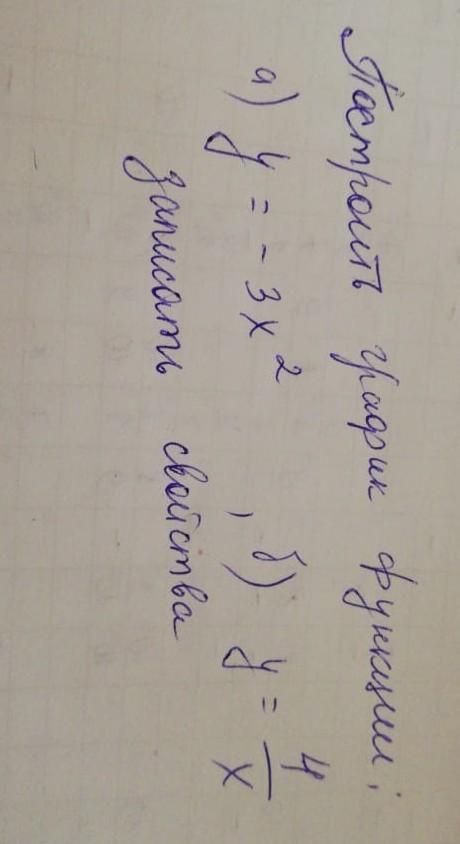 Построить график функции:
а) y = - 3x², б) y = 4/x
записать свойства